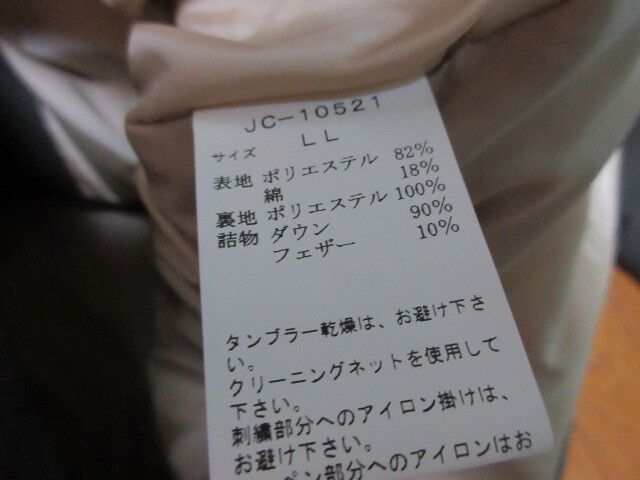 JC-10521
サイズ LL
表地 ポリエステル 82%
綿 18%
裏地 ポリエステル 100%
詰物 ダウン 90%
フェザー 10%
タンブラー乾燥は、お避け下さ
い。
クリーニングネットを使用して
下さい。
刺繍部分へのアイロン掛けは、
お避け下さい。
ペン部分へのアイロンはお